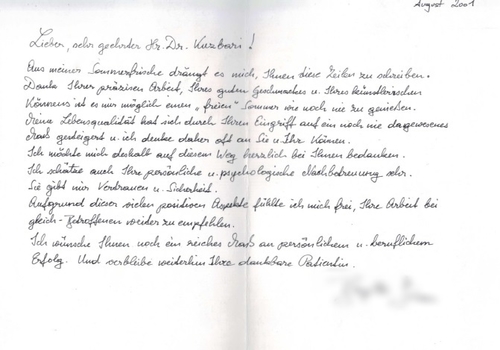 August 2001
Lieber, sehr geehrter Hr. Dr. Kuzbari!
Aus meiner Sommerfrische drängt es mich, Ihnen diese Zeilen zu schreiben.
Dank Ihrer präzisen Arbeit, Ihres guten Geschmackes u. Ihres künstlerischen
Könnens ist es mir möglich einen „freien" Sommer wie noch nie zu genießen.
Meine Lebensqualität hat sich durch Ihren Eingriff auf ein noch nie dagewesenes
Maß gesteigert u. ich denke daher oft an Sie u. Ihr Können.
Ich möchte mich deshalb auf diesem Weg herzlich bei Ihnen bedanken.
Ich schätze auch Ihre persönliche u. psychologische Nachbetreuung sehr.
Sie gibt mir Vertrauen u. Sicherheit.
Aufgrund dieser vielen positiven Aspekte fühlte ich mich frei, Ihre Arbeit bei
gleich-Betroffenen weiter zu empfehlen.
Ich wünsche Ihnen noch ein reiches Maß an persönlichem u. beruflichem
Erfolg. Und verbleibe weiterhin Ihre dankbare Patientin.